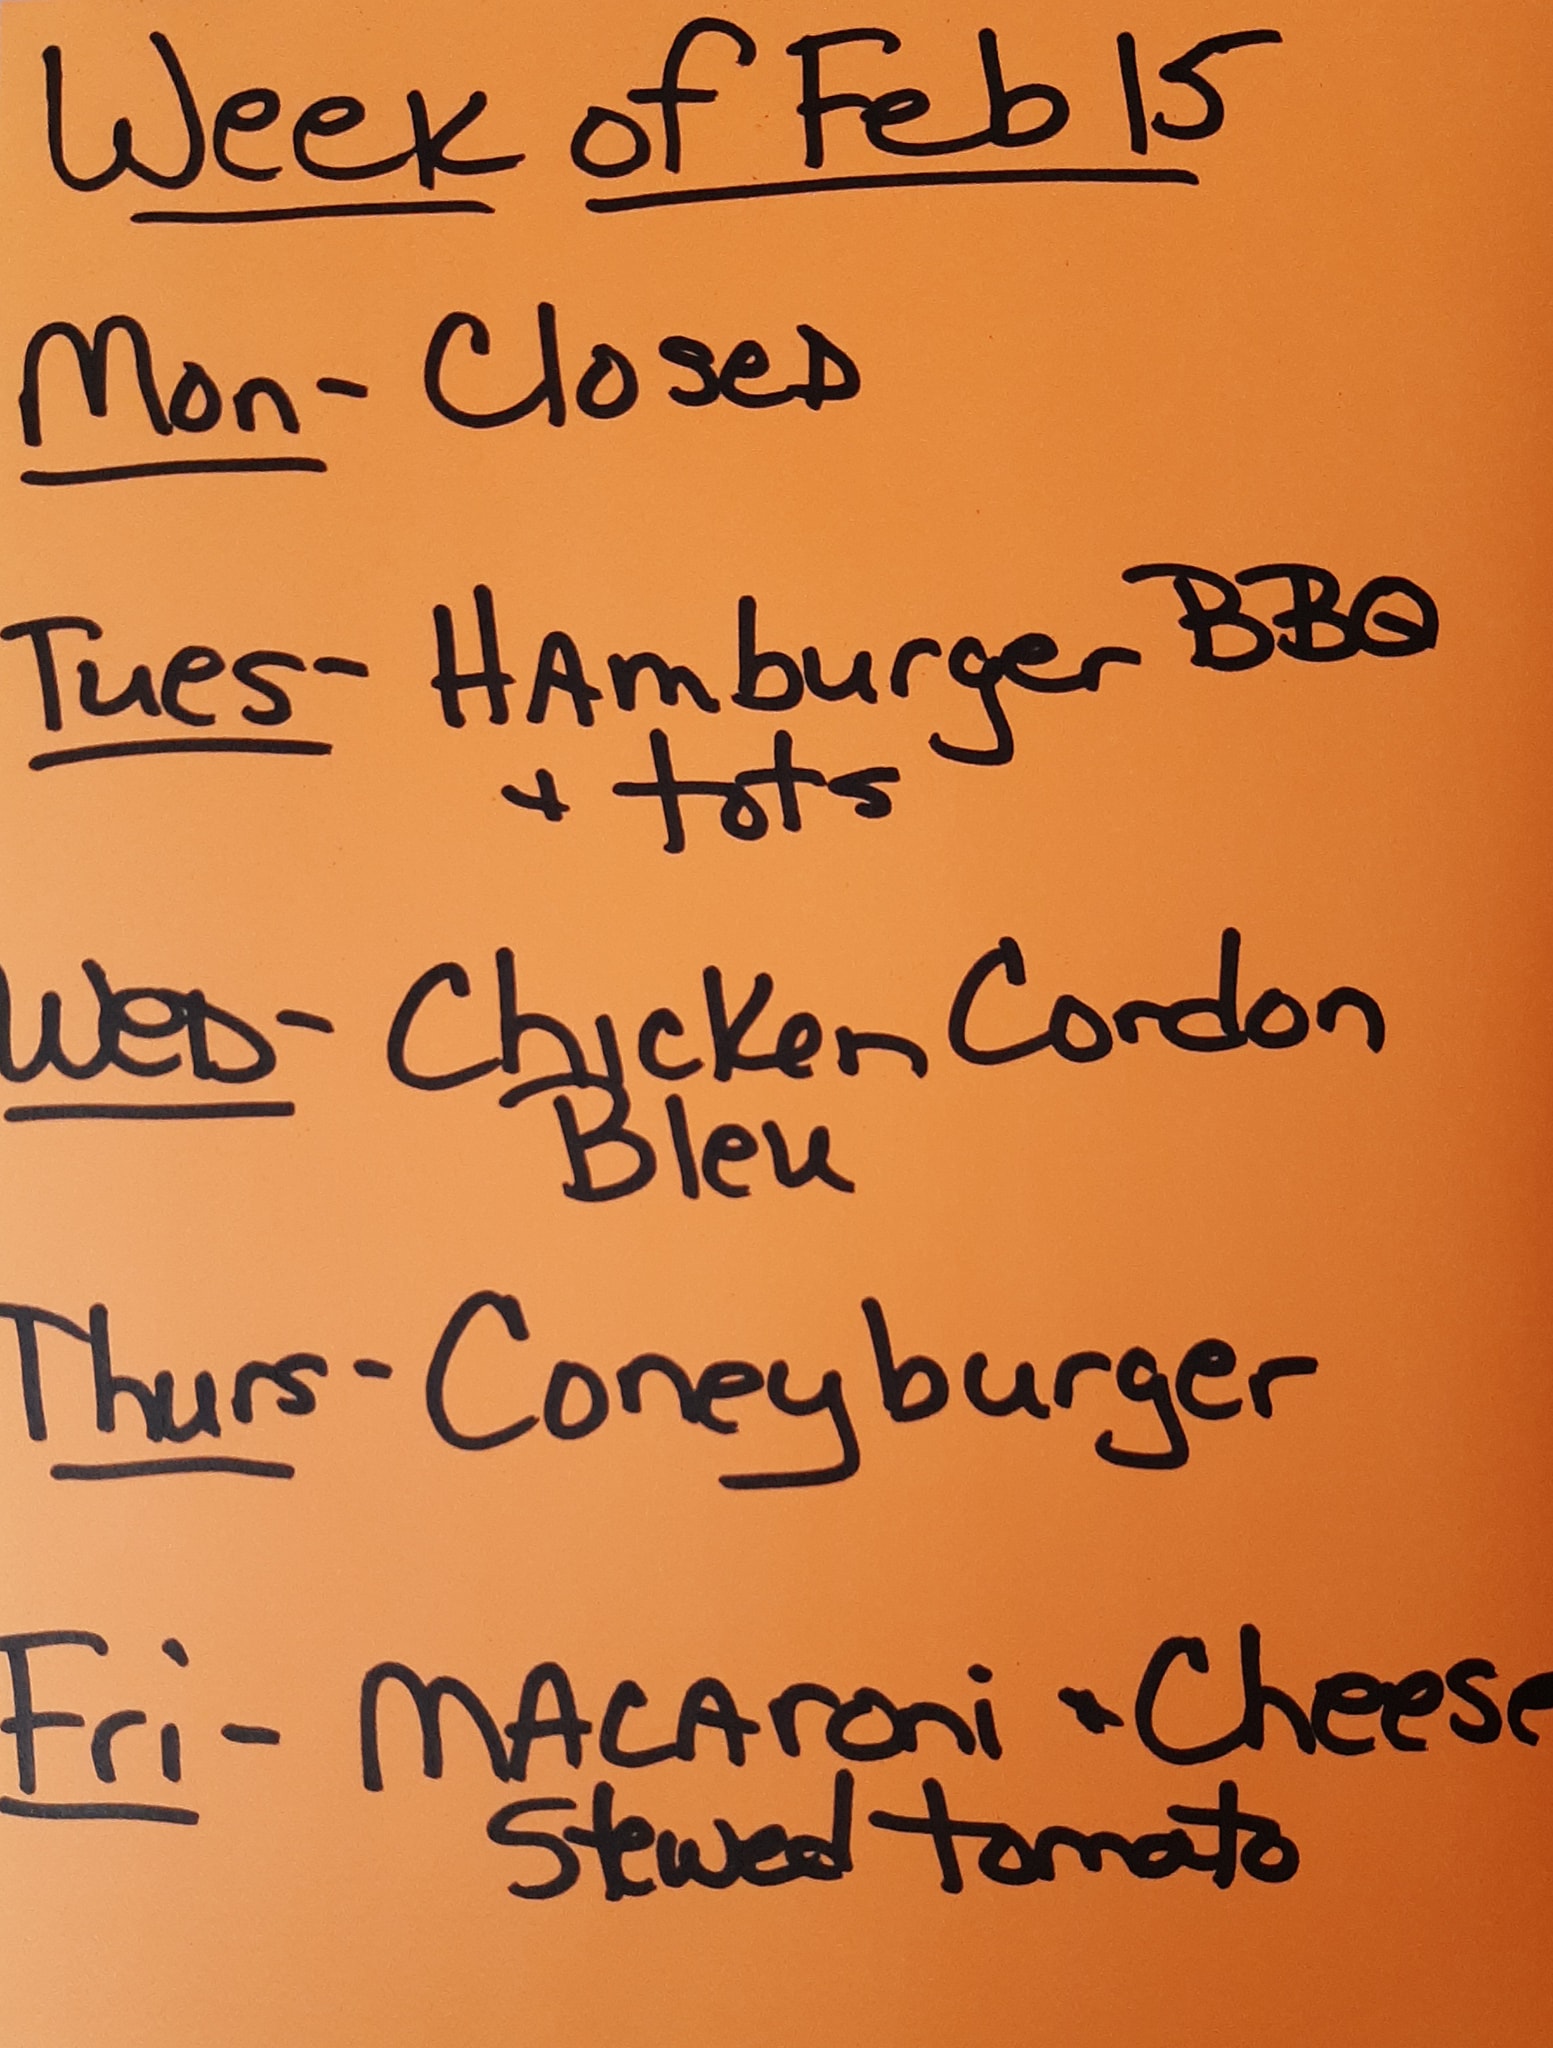 Week of Feb 15
Mon- Closed
Tues- HAmburger BBQ
+ tots
Wed- Chicken Cordon
Bleu
Thurs- Coneyburger
Fri- MACAroni + Cheese
Stewed tomato